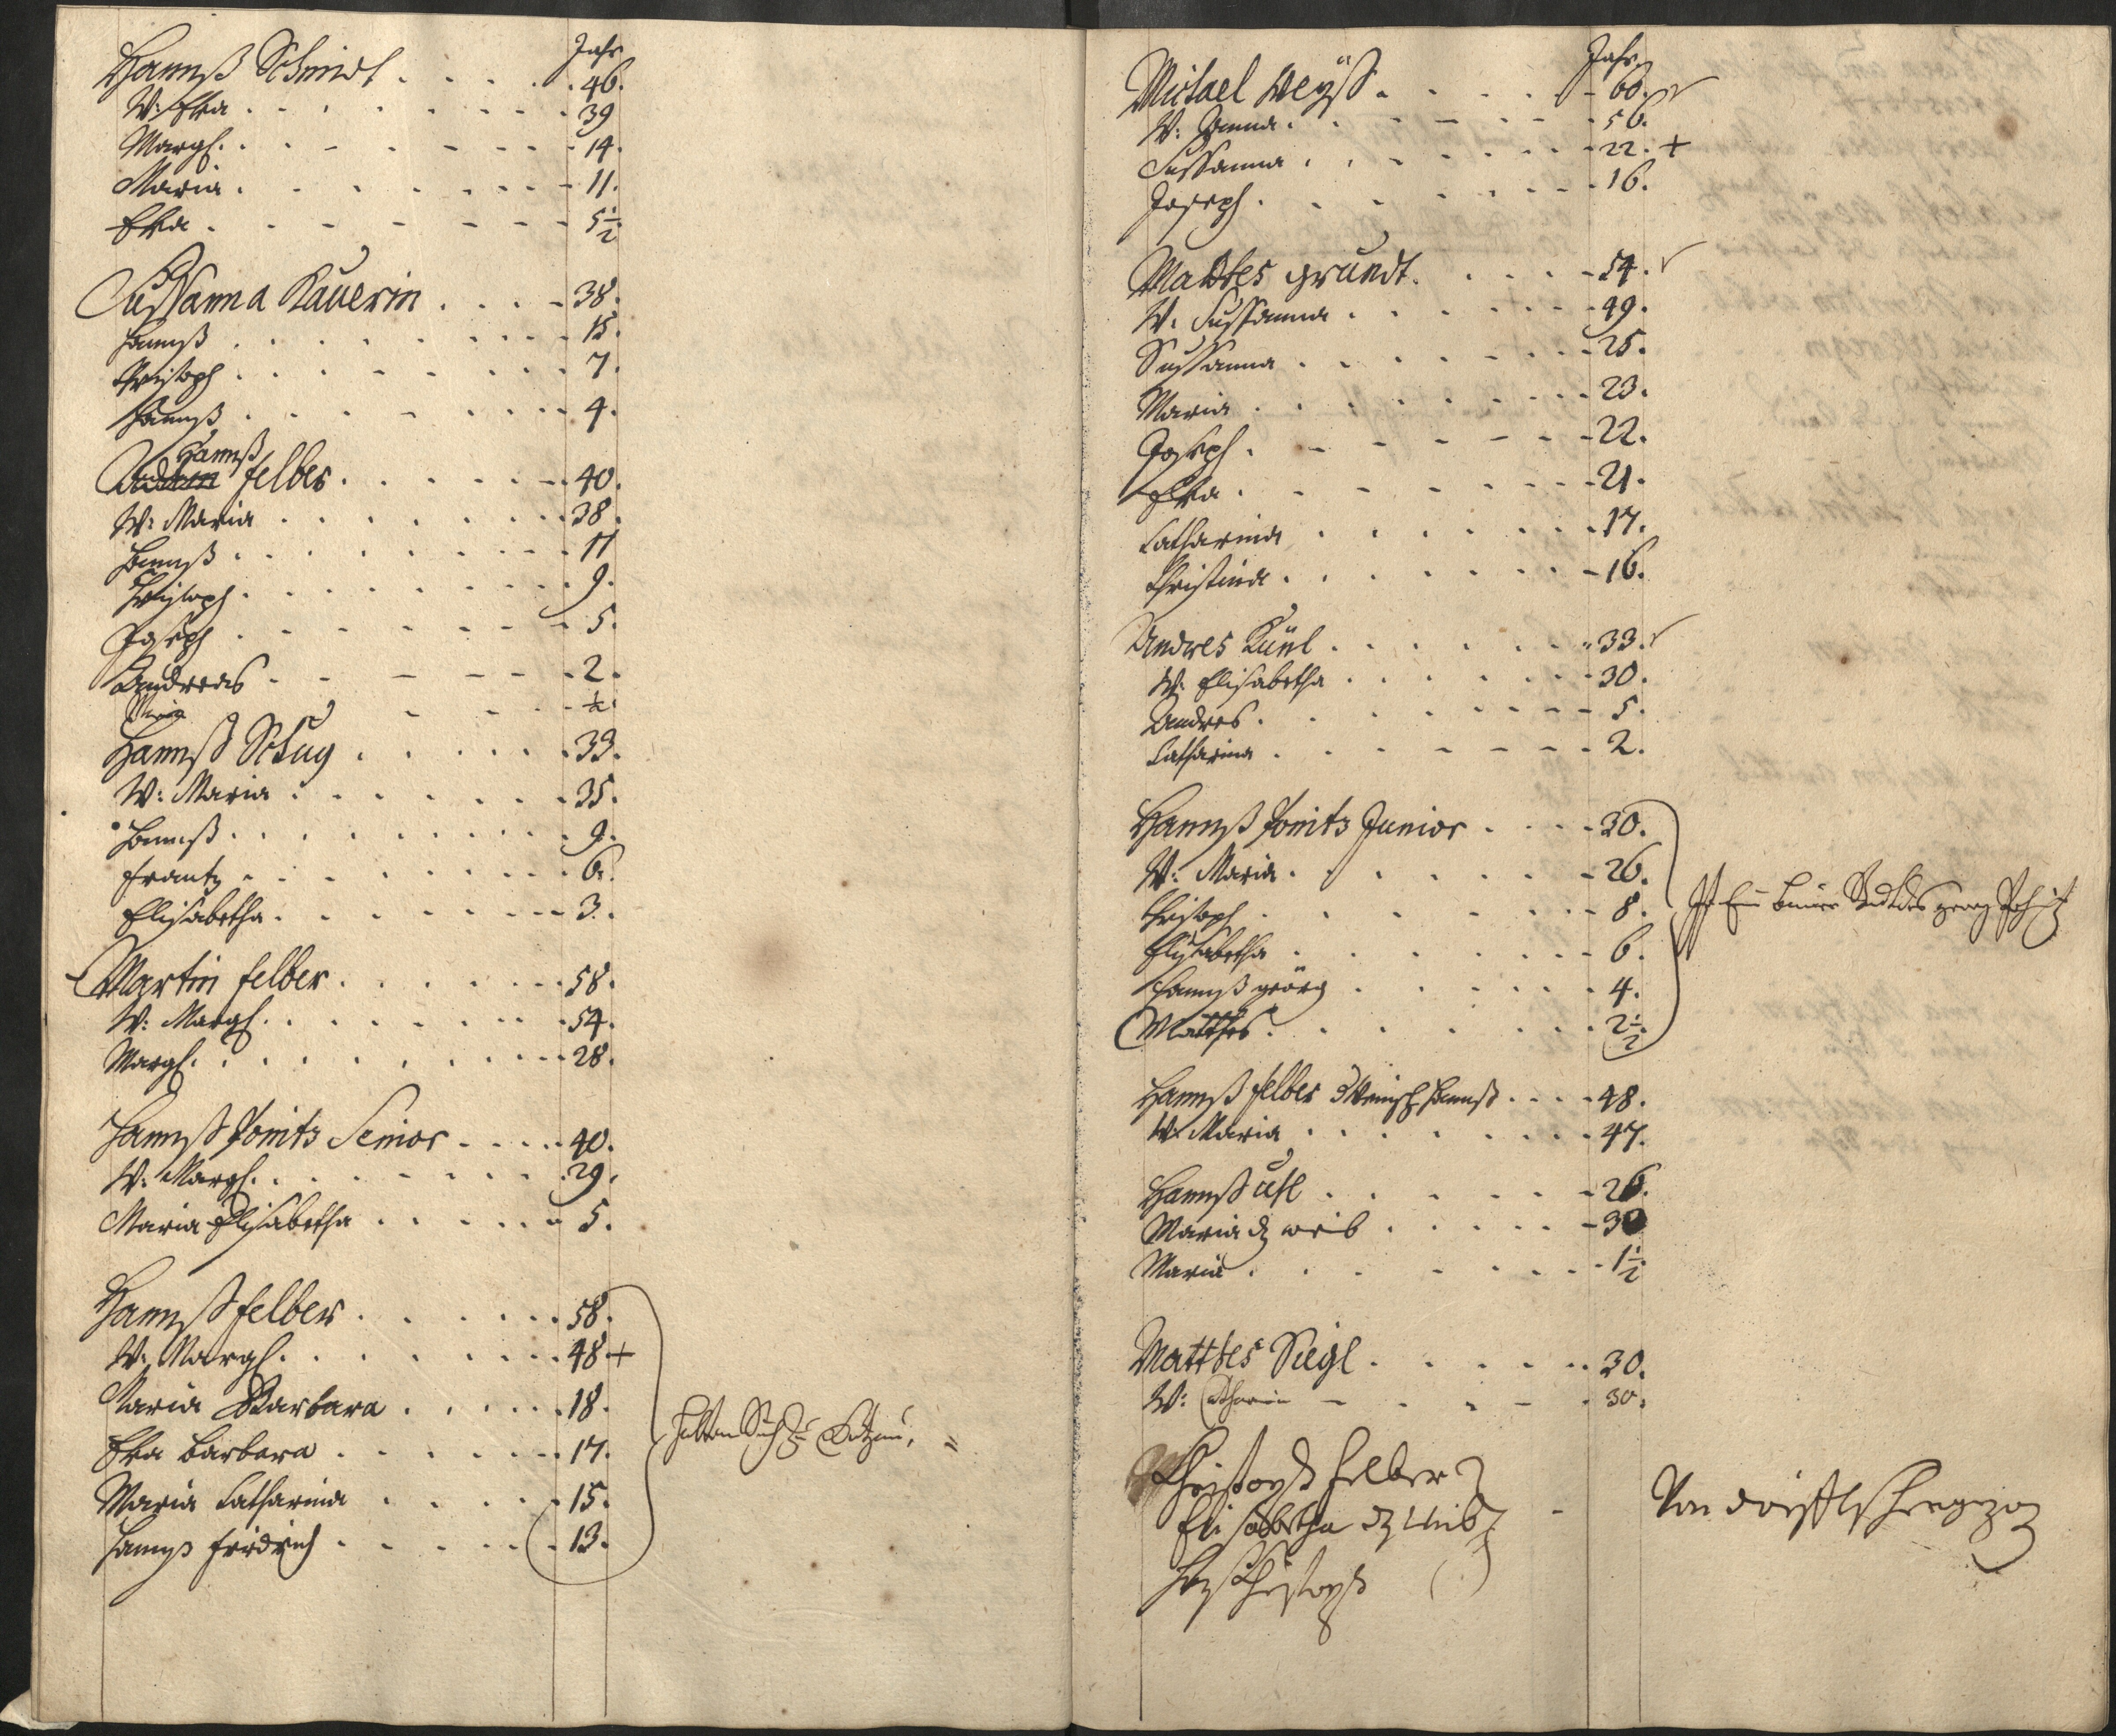 Jahr
Hannß Schmidt . . . . 46.
W: Eva . . . . 39
Margl. . . . . 14.
Maria . . . . 11.
Eva . . . . 5½
Sussanna Kauerin . . . . 38.
Hannß . . . . 15.
Christoph . . . . 7.
Hannß . . . . 4.
Hannß
Felber . . . . 40.
W: Maria . . . . 38.
Hannß . . . . 11
Christoph . . . . 9.
Joseph . . . . 5.
Andreas . . . . 2.
Maria . . . . ½.
Hannß Schug . . . . 33.
W: Maria . . . . 35.
Hannß . . . . 9.
Frantz . . . . 6.
Elisabetha . . . . 3.
Martin Felber . . . . 58.
W: Margl. . . . . 54.
Margl. . . . . 28.
Hannß Ponitz Senior . . . . 40.
W: Margl. . . . . 29.
Maria Elisabetha . . . . 5.
Hannß Felber . . . . 58.
W: Margl. . . . . 48 +
Maria Barbara . . . . 18.
Eva Barbara . . . . 17.
Maria Catharina . . . . 15.
Hannß Fridrich . . . . 13.
halten Sich
Jahr
Michael Weÿß . . . . 60.
W: Anna . . . . 56.
Sussanna . . . . 22. +
Joseph . . . . 16.
Matthes Grundt . . . . 54.
W: Sussanna . . . . 49.
Sussanna . . . . 25.
Maria . . . . 23.
Joseph . . . . 22.
Eva . . . . 21.
Catharina . . . . 17.
Christina . . . . 16.
Andres Künl . . . . 33.
W: Elisabetha . . . . 30.
Andres . . . . 5.
Catharina . . . . 2.
Hannß Ponitz Junior . . . . 30.
W: Maria . . . . 26.
Christoph . . . . 8.
Elisabetha . . . . 6.
Hannß Geörg . . . . 4.
Matthes . . . . 2½.
Ist Ein
Hannß Felber . . . . 48.
W: Maria . . . . 47.
Hannß Uhl . . . . 26.
Maria dz weib . . . . 30
Maria . . . . 1½
Matthes Siegl . . . . 30.
W: Catharin . . . . 30.
Christoph Felber
Elisabetha dz Weib
Christoph
Von